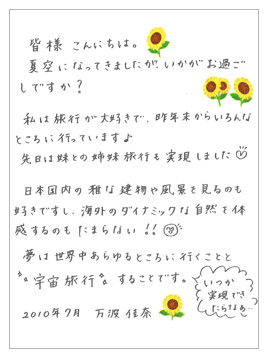 皆様 こんにちは。
夏空になってきましたが、いかがお過ご
しですか？
私は旅行が大好きで、昨年末からいろんな
ところに行っています♪
先日は妹との姉妹旅行も実現しました
日本国内の雅な建物や風景を見るのも
好きですし、海外のダイナミックな自然を体
感するのもたまらない!!
夢は世界中あらゆるところに行くことと
"宇宙旅行"することです。
いつか
実現でき
たらなぁ…
2010年7月 万波佳奈